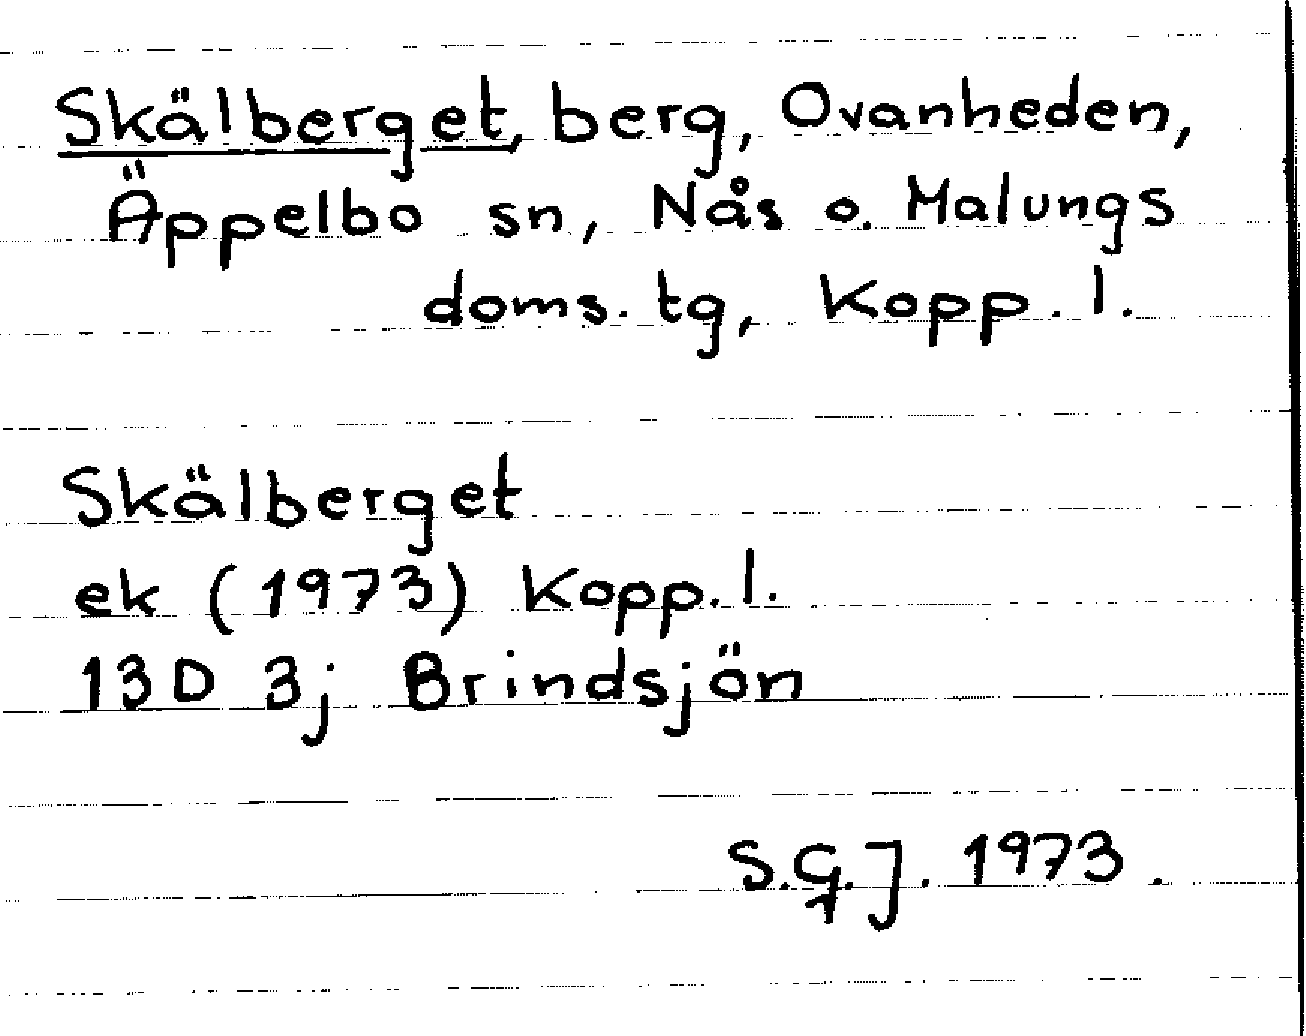 Skälberget, berg, Ovanheden,
Äppelbo sn, Nås o. Malungs
doms. tg, Kopp. l.
Skälberget
ek (1973) Kopp. l.
13D 3j Brindsjön
S.G.J. 1973.